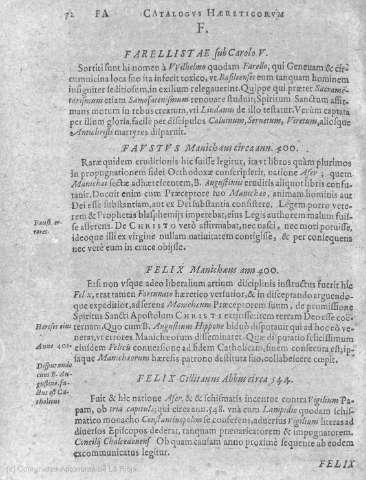 72 FA CATALOGVS HÆRETICORVM
F.
FARELLISTAE sub Carolo V.
Sortiti sunt hi nomen à VVilhelmo quodam Farello, qui Geneuam & cir-
cumuicina loca suo ita infecit toxico, vt Basileenses eum tanquam hominem
insigniter seditiosum, in exilium relegauerint. Quippe qui præter Sacrame-
tarismum etiam Samosatenismum renouare studuit, Spiritum Sanctum affir-
mans motum in rebus creatum, vti Lindanus de illo testatur. Verùm captata
per illum gloria, facilè per discipulos Caluinum, Seruetum, Viretum, aliosque
Antichristi martyres disparuit.
FAVSTVS Manichæus circa ann. 400.
Raræ quidem eruditionis hic fuisse legitur, ita vt libros quàm plurimos
in propugnationem fidei Orthodoxæ conscripserit, natione Afer; quem
Manichææ sectæ adiutorem, B. Augustinus eruditis aliquot libris confu-
tauit. Docuit enim cum Præceptore suo Manichæo, animam hominis aut
Dei esse substantiam, aut ex Dei substantia consistere. Legem porrò vete-
rem & Prophetas blasphemijs impetebat, eius Legis authorem malum fuis-
se asserens. De CHRISTO verò affirmabat, nec nasci, nec mori potuisse,
ideoque illi ex virgine nullam natiuitatem contigisse, & per consequens
nec verè eum in cruce obijsse.
Fausti er-
rores.
FELIX Manichæus ann 400.
Etsi non vsque adeo liberalium artium disciplinis instructus fuerit hic
Felix, erat tamen Fortunato hæretico versutior, & in disceptando arguendo-
que expeditior, asserens Manichæum Præceptorem suum, de promissione
Spiritus Sancti Apostolum CHRISTI extitisse: item terram Deo esse coæ-
ternam. Quo cum B. Augustinus Hippone biduò disputauit qui ad hoc eò ve-
nerat, vt errores Manichæorum disseminaret. Quæ disputatio felicissimum
eiusdem Felicis conuersione ad fidem Catholicam, finem consecuta est, ip-
saque Manichæorum hæresis patrono destituta suo, collabescere cœpit.
Hæreses eius
Anno 402.
Disputatio
cum B. Au-
gustino, fa-
ctus est Ca-
tholicus
FELIX Gillitanus Abbas circa 544.
Fuit & hic natione Afer, & & schismatis incentor contra Vigilium Pa-
pam, ob tria capitula; qui circa ann. 548. vnà cum Lampidio quodam schis-
matico monacho Constantinopolim se conferens, aduersus Vigilium literas ad
diuersos Episcopos dederat, tanquam præuaricatorem & impugnatorem
Concilij Chalcedonens. Ob quam causam anno proximè sequente ab eodem
excommunicatus legitur.
FELIX